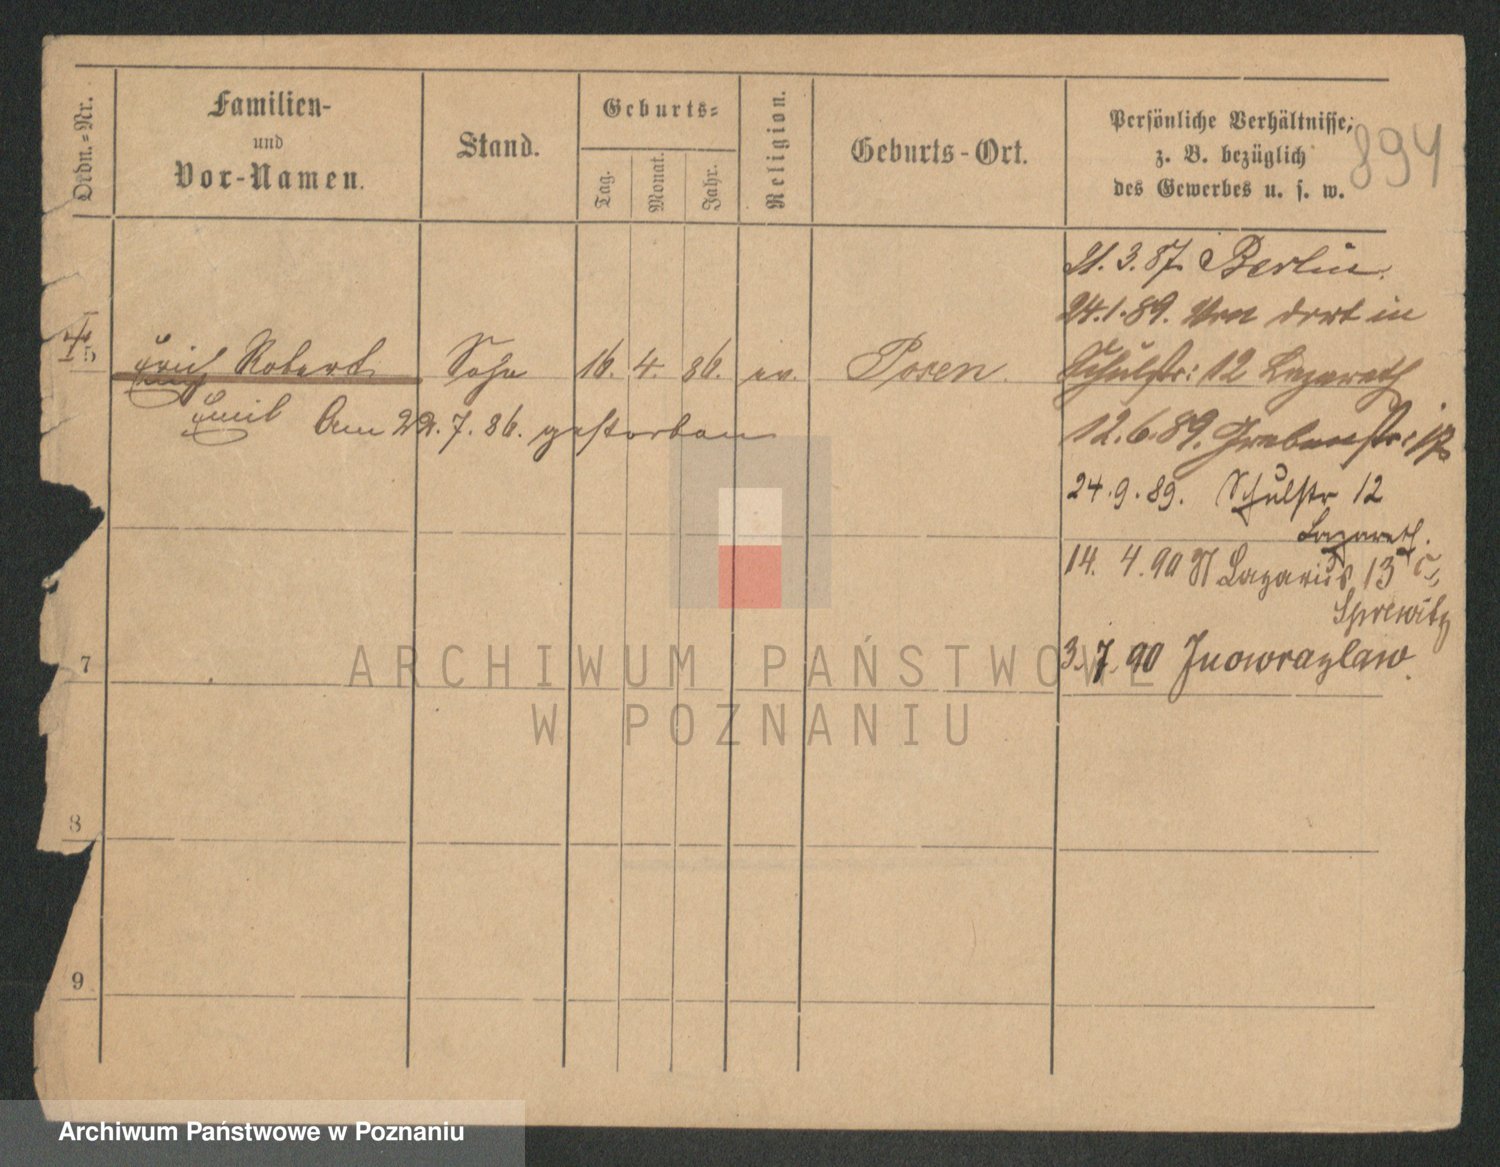 Ordn.-Nr.
Familien-
und
Vor-Namen.
Stand.
Geburts-
Tag.
Monat.
Jahr.
Religion.
Geburts-Ort.
Persönliche Verhältnisse,
z. B. bezüglich
des Gewerbes u. s. w.
894
21. 3. 87. Berlin.
24. 1. 89. Von dort in
5 Erich Robert Sohn 16. 4. 86. ev. Posen. Schulstr: 12 Lazareth
Emil Am 22. 7. 86. gestorben
12. 6. 89. Grabenstr:
24. 9. 89. Schulstr 12
Lazareth.
14. 4. 90 St Lazarus 13
3. 7. 90 Inowrazlaw.
7
8
9
ARCHIWUM PAŃSTWOWE
W POZNANIU
Archiwum Państwowe w Poznaniu